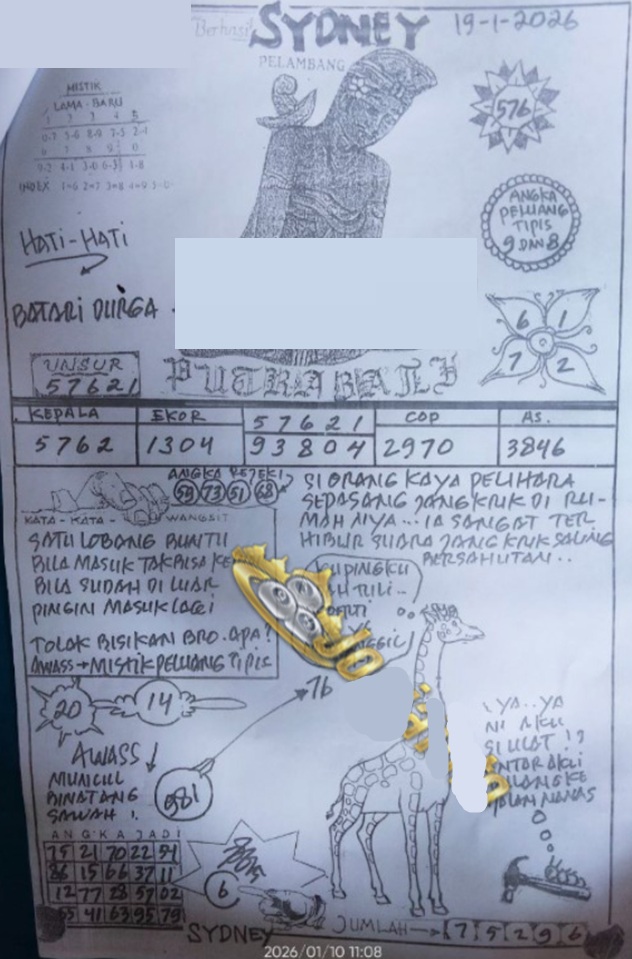 Berhasil SYDNEY 19-1-2026
PELAMBANG
MISTIK
LAMA - BARU
1 2 3 4 5
6 7 8 9 0
INDEX 1=6 2=7 3=8 4=9 5=0
576
ANGKA
PELUANG
TIPIS
9 DAN 8
HATI-HATI
BATARI DURGA
6 1
7 2
UNSUR
57621
PUTRA BALI
KEPALA EKOR 57621 COP AS.
5762 1304 93804 2970 3846
ANGKA REJEKI
59 73 51 68
KATA - KATA - WANGSIT
SATU LOBANG BUNTU
BILA MASUK TAK BISA KE
BILA SUDAH DI LUAR
PINGIN MASUK LAGI
TOLAK BISIKAN BRO. APA?
AWASS → MISTIK PELUANG TIPIS
SI ORANG KAYA PELIHARA
SEPASANG JANGKRIK DI RU-
MAH NYA ... IA SANGAT TER
HIBUR SUARA JANGKRIK SALING
BERSAHUTAN ..
KUPINGKU
TULI ...
20 14
76
981
AWASS!
MUNCUL
BINATANG
SAWAH !
YA .. YA
NI AKU
SI ULAT !?
NTAR AKU
DALAM NANAS
ANGKA JADI
75 21 70 22 51
86 15 66 37 11
12 77 28 57 02
55 41 63 95 79
6
SYDNEY
JUMLAH → 7 5 2 9 6
2026/01/10 11:08